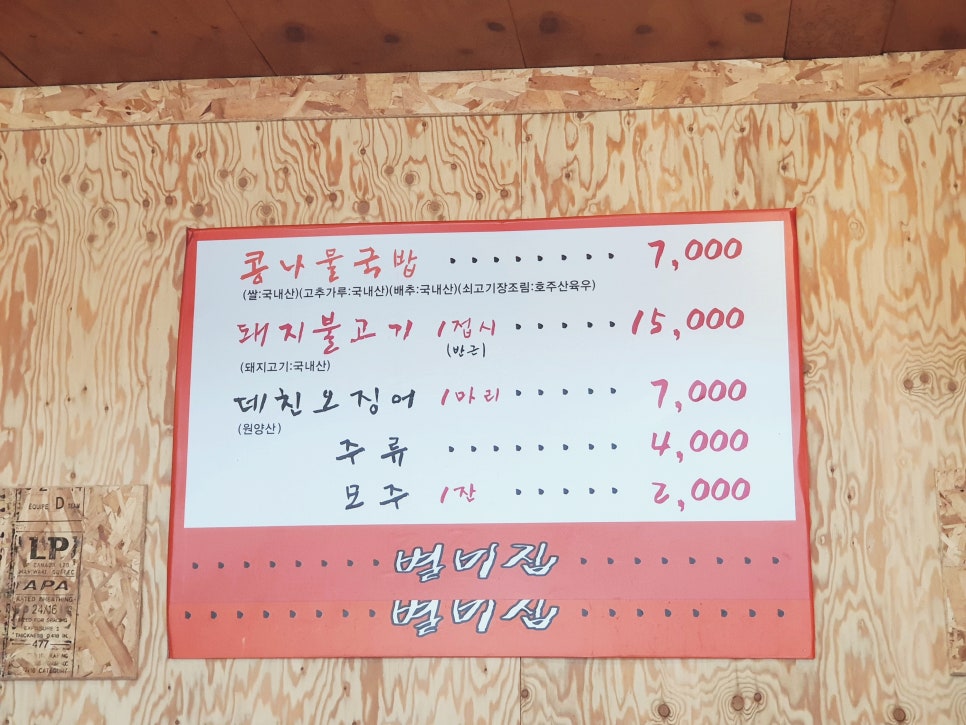 콩나물국밥 ········ 7,000
(쌀:국내산)(고추가루:국내산)(배추:국내산)(쇠고기장조림:호주산육우)
돼지불고기 1접시 ····· 15,000
(반근)
(돼지고기:국내산)
데친오징어 1마리 ····· 7,000
(원양산)
주류 ········ 4,000
모주 1잔 ····· 2,000
별미집
별미집
EQUIPE D TEAM
LP
APA
24/16
THICKNESS 0.418 IN.
477